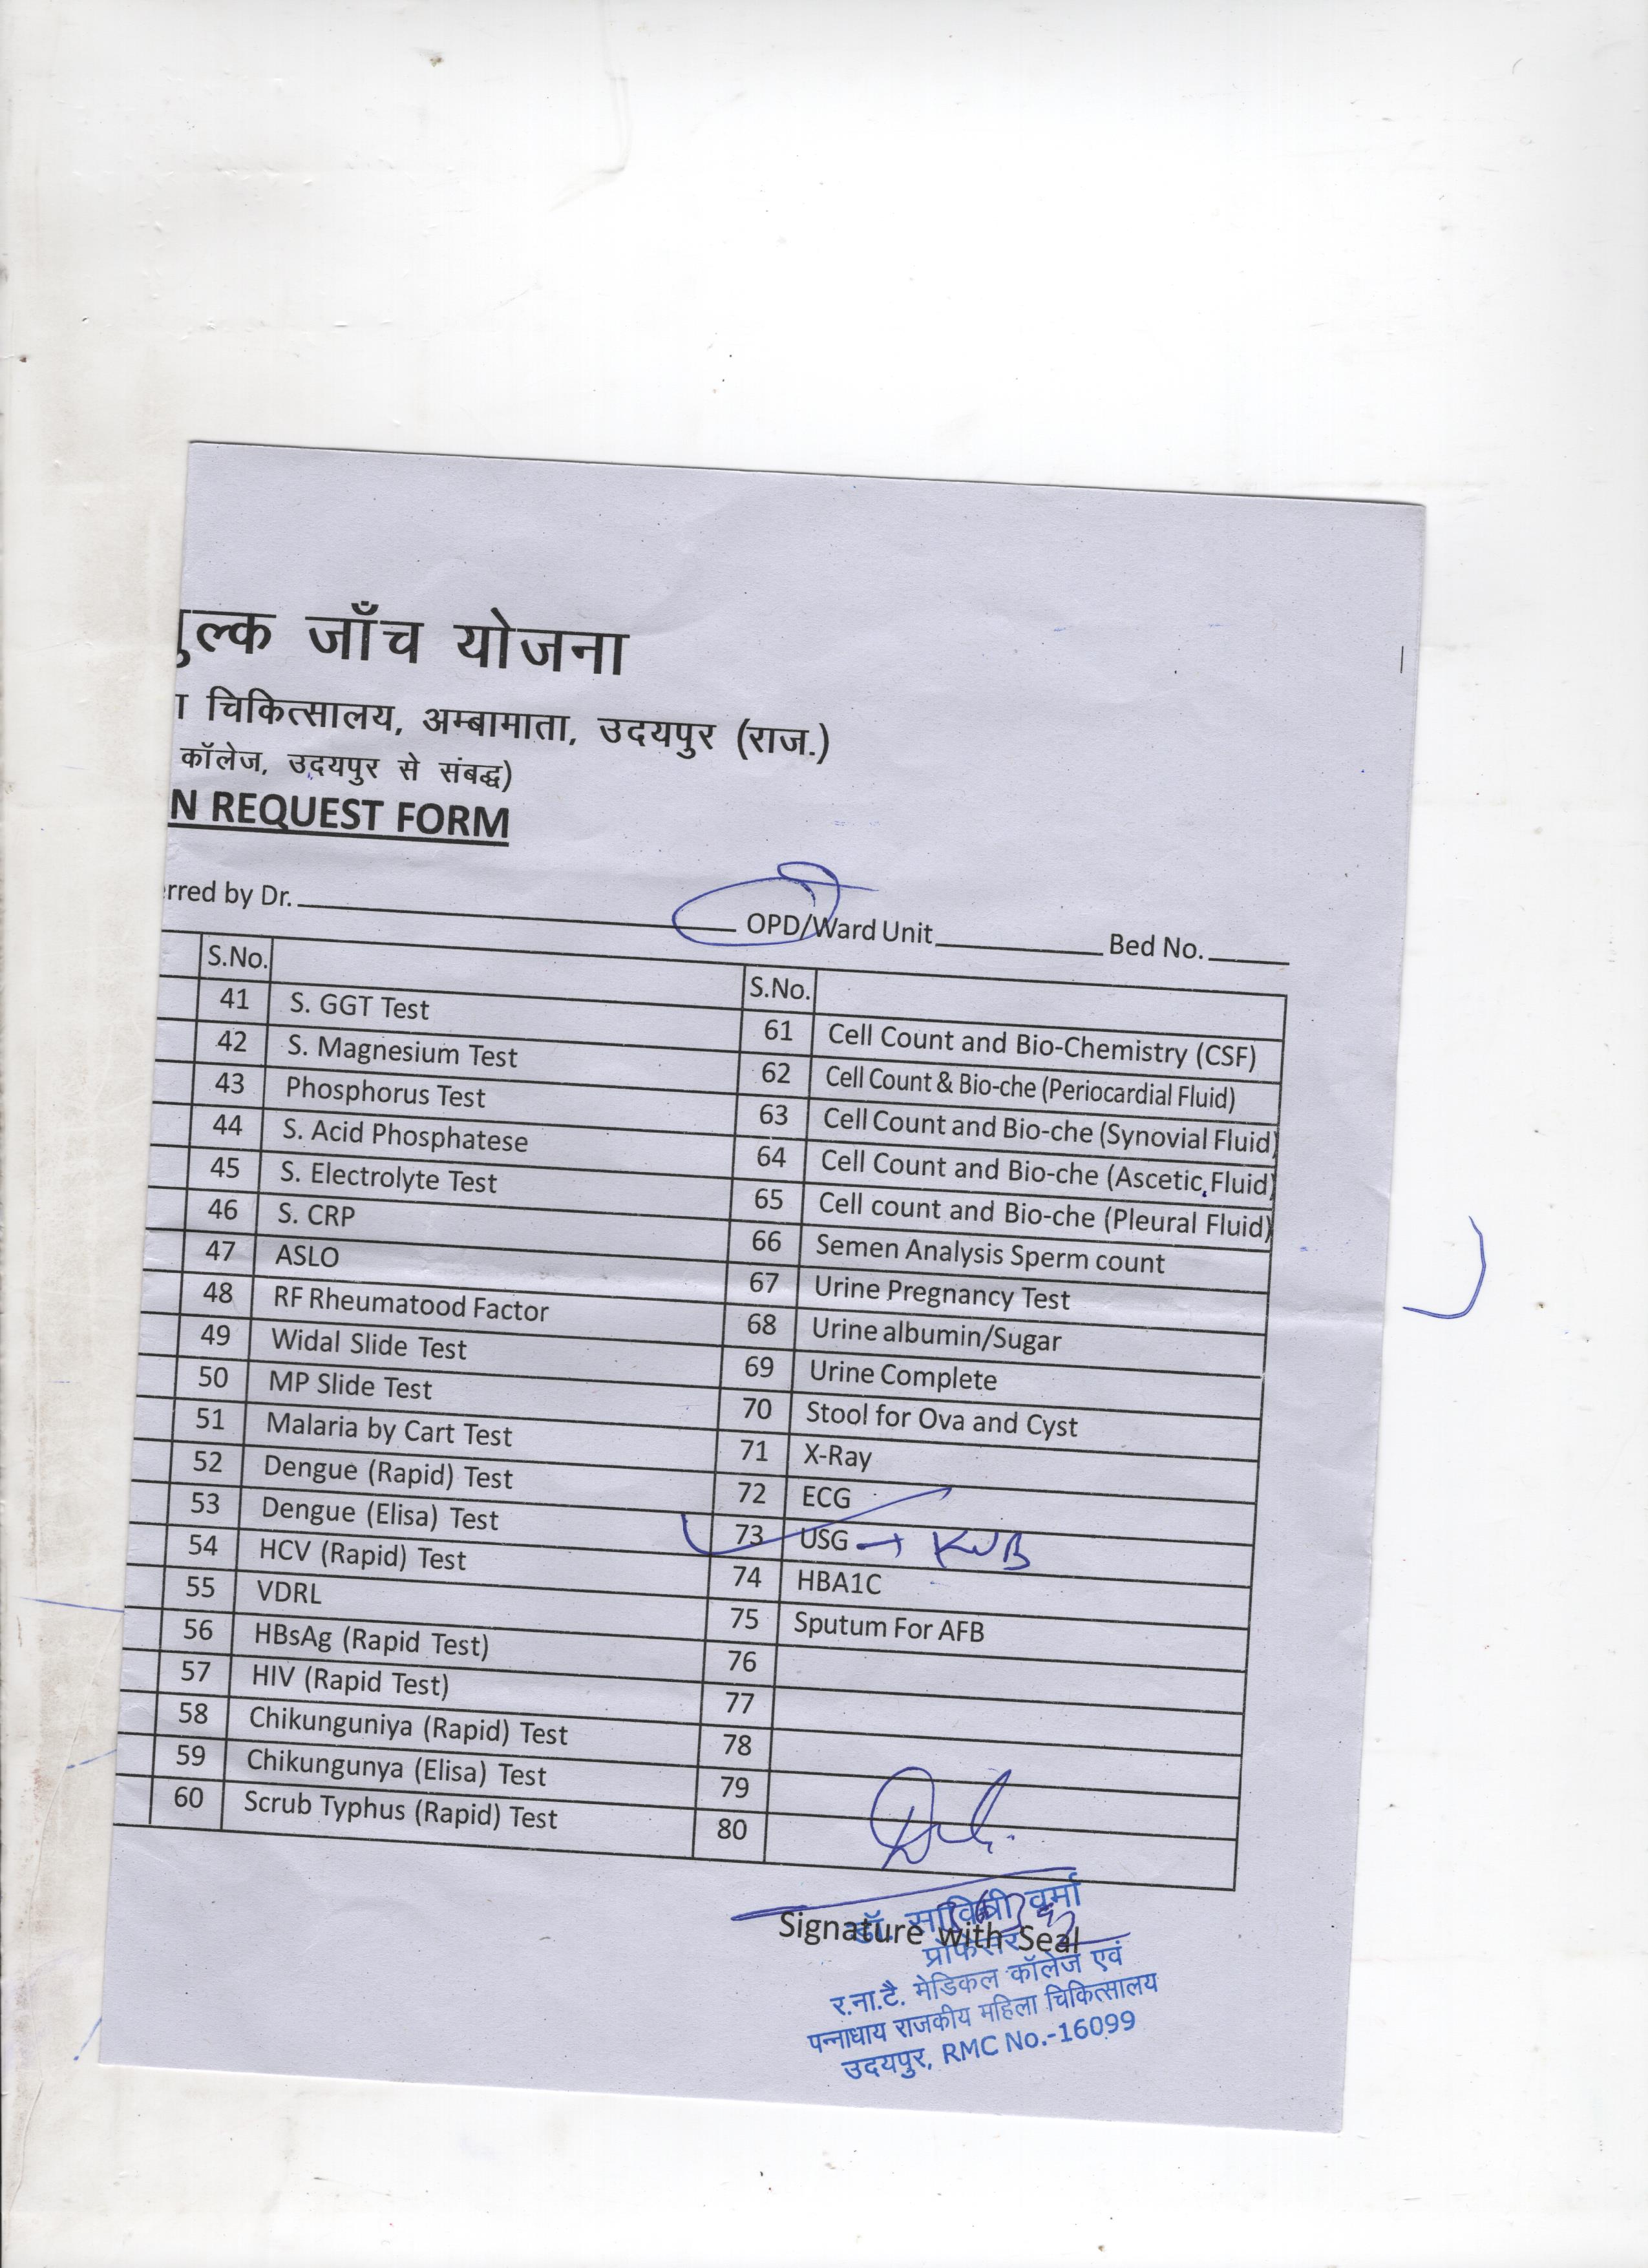 ुल्क जाँच योजना
ा चिकित्सालय, अम्बामाता, उदयपुर (राज.)
कॉलेज, उदयपुर से संबद्ध)
N REQUEST FORM
rred by Dr. OPD/Ward Unit Bed No.
S.No. S.No.
41 S. GGT Test 61 Cell Count and Bio-Chemistry (CSF)
42 S. Magnesium Test 62 Cell Count & Bio-che (Periocardial Fluid)
43 Phosphorus Test 63 Cell Count and Bio-che (Synovial Fluid)
44 S. Acid Phosphatese 64 Cell Count and Bio-che (Ascetic Fluid)
45 S. Electrolyte Test 65 Cell count and Bio-che (Pleural Fluid)
46 S. CRP 66 Semen Analysis Sperm count
47 ASLO 67 Urine Pregnancy Test
48 RF Rheumatood Factor 68 Urine albumin/Sugar
49 Widal Slide Test 69 Urine Complete
50 MP Slide Test 70 Stool for Ova and Cyst
51 Malaria by Cart Test 71 X-Ray
52 Dengue (Rapid) Test 72 ECG
53 Dengue (Elisa) Test 73 USG → KUB
54 HCV (Rapid) Test 74 HBA1C
55 VDRL 75 Sputum For AFB
56 HBsAg (Rapid Test) 76
57 HIV (Rapid Test) 77
58 Chikunguniya (Rapid) Test 78
59 Chikungunya (Elisa) Test 79
60 Scrub Typhus (Rapid) Test 80
डॉ. सावित्री वर्मा
Signature with Seal
प्रोफेसर
र.ना.टै. मेडिकल कॉलेज एवं
पन्नाधाय राजकीय महिला चिकित्सालय
उदयपुर, RMC No.-16099